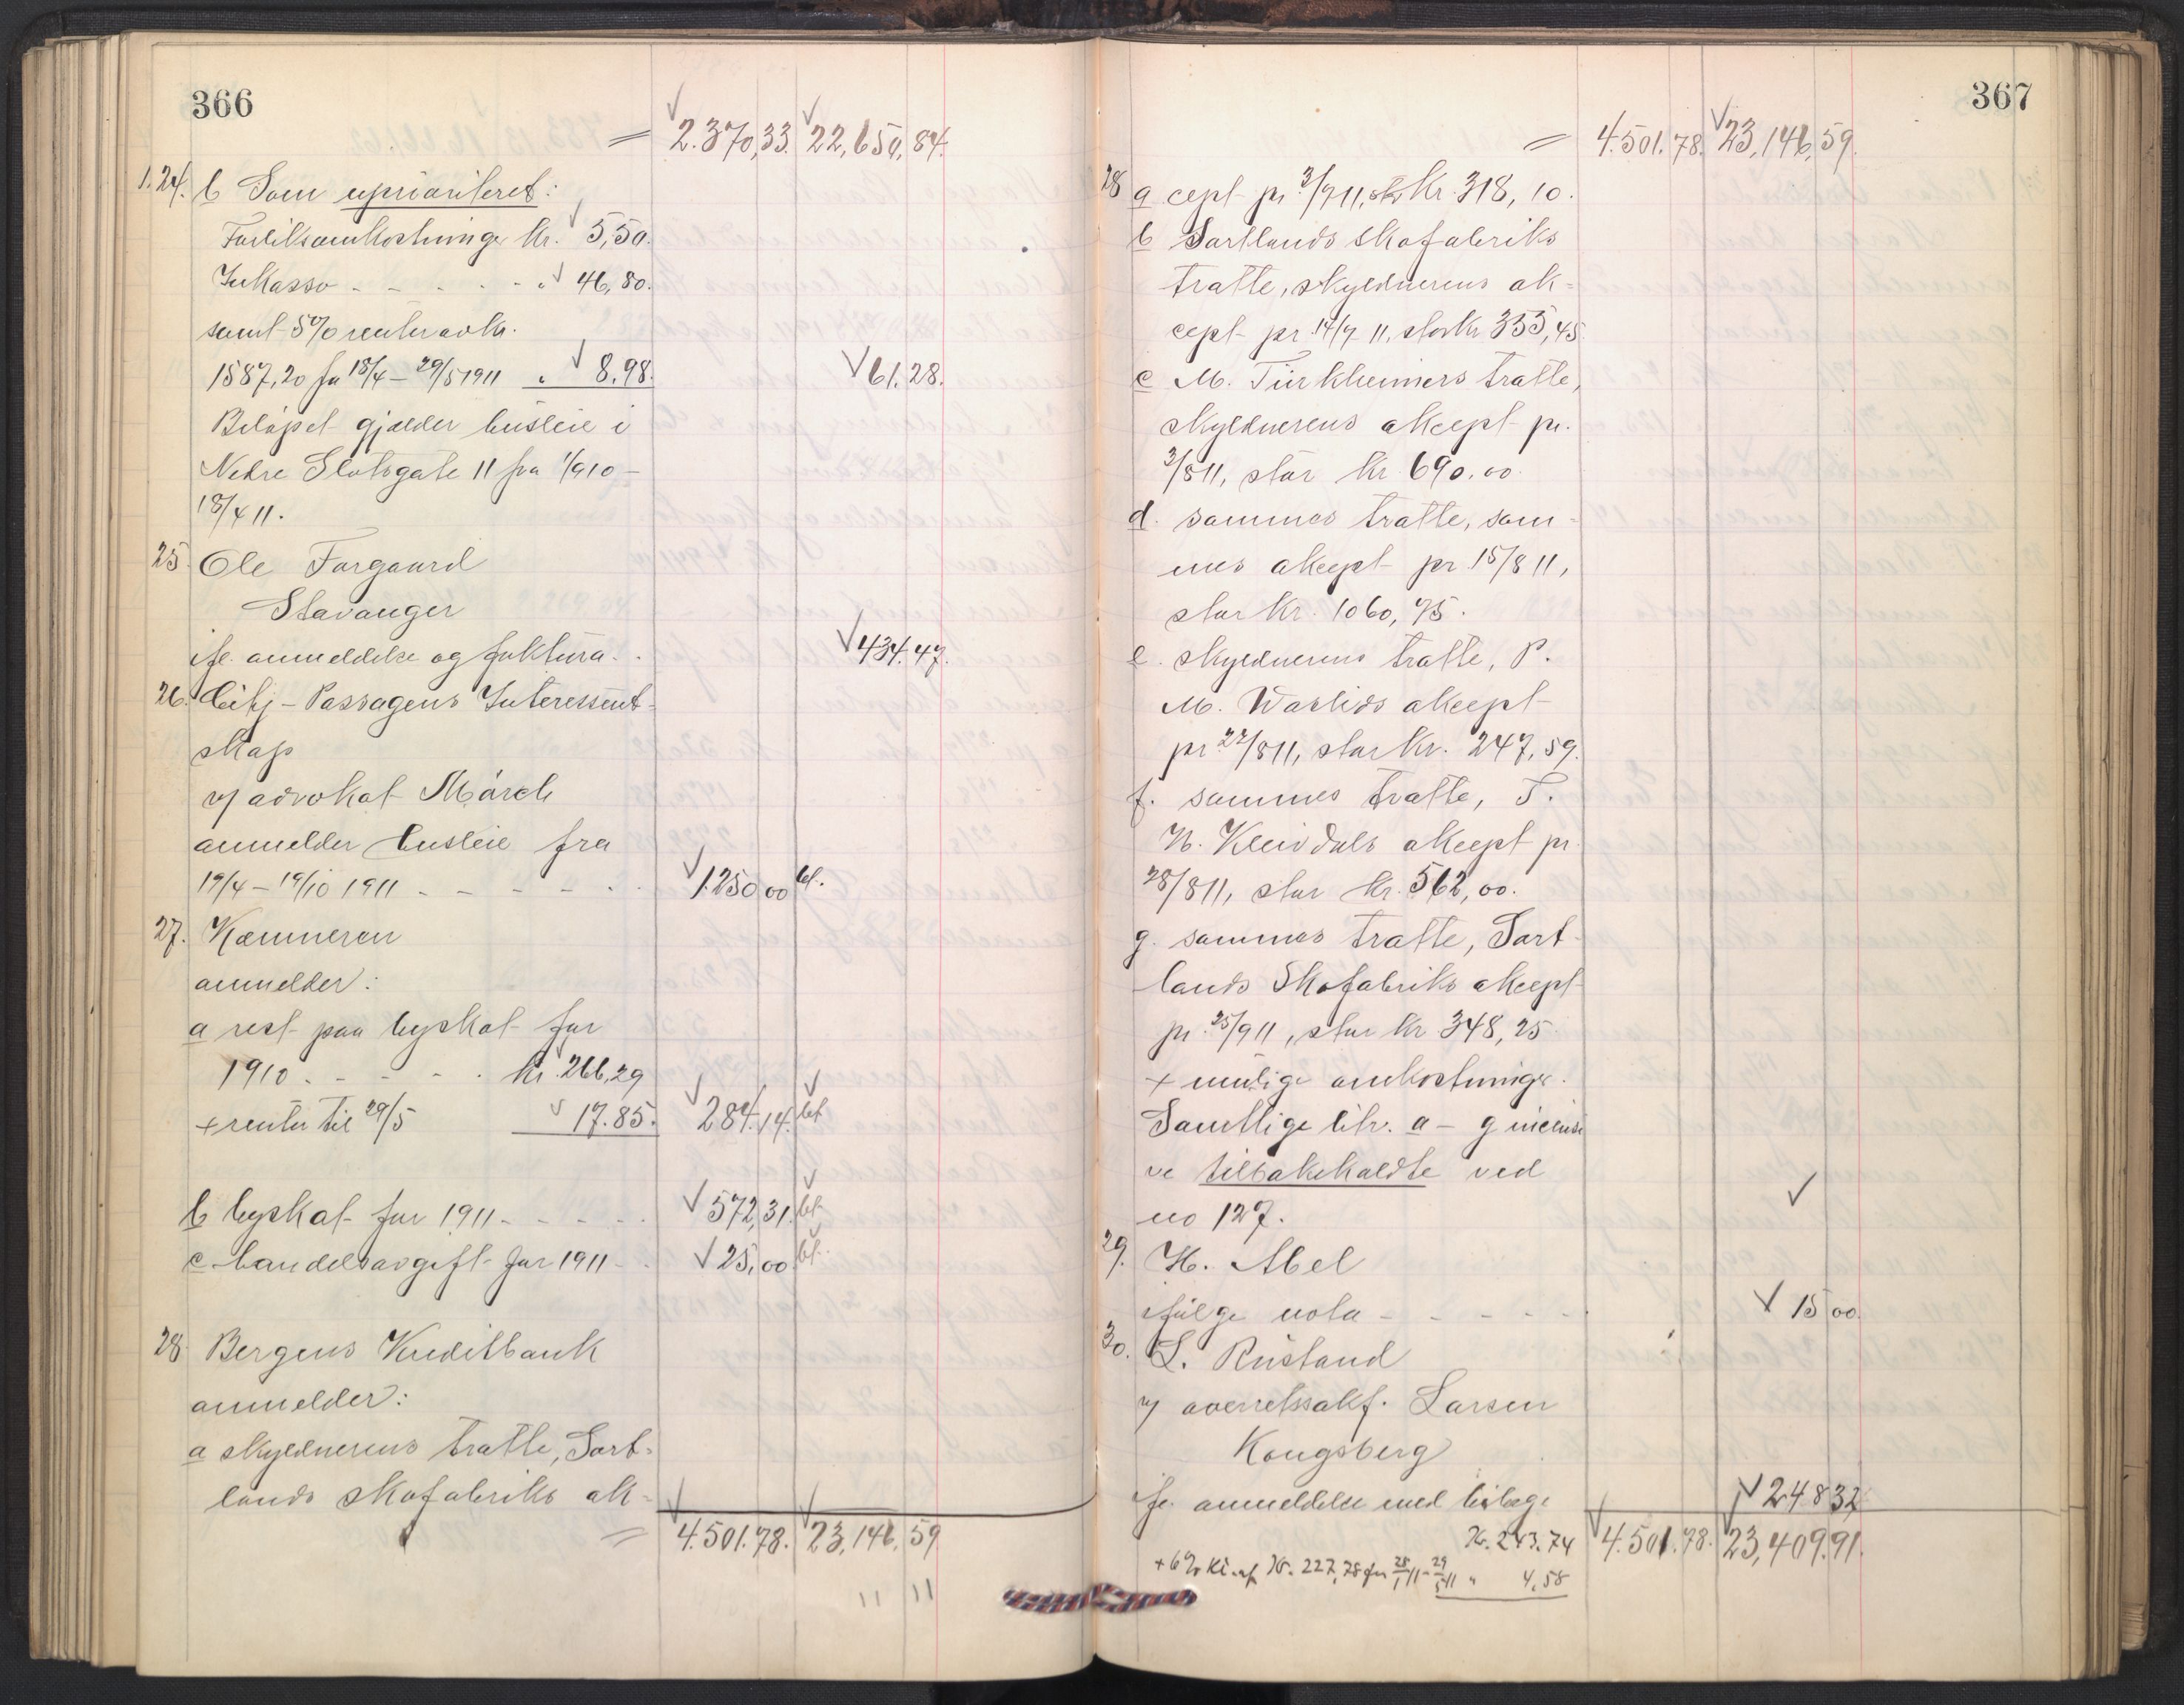 366
= 2.370,33. 22,650,84.
1.24. b Som uprioriteret:
Forliksomkostninger kr. 5,50.
Inkasso - - - - - " 46,80.
samt 5% renter av kr.
1587,20 fra 18/4 – 29/5 1911 " 8.98. 61.28.
Beløpet gjælder husleie i
Nedre Slotsgate 11 fra 1/9 10 –
18/4 11.
25. Ole Forgaard
Stavanger
ifl. anmeldelse og faktura. . 434.47.
26. City-Passagens Interessent-
skap
v/ advokat Mörch
anmelder husleie fra
19/4 – 19/10 1911 - - - - - . 1.250 00 bet.
27. Kæmneren
anmelder:
a rest paa byskat for
1910. - - - - . kr. 266,29
+ renter til 29/5 17.85. 284.14. bet
b byskat for 1911 - - - - - 572,31. bet
c. handelsavgift for 1911 - . 25,00. bet.
28. Bergens Kreditbank
anmelder:
a skyldnerens tratte, Sort-
lands skofabriks ak-
= 4.501.78. 23,146,59
11 11
367
= 4.501.78. 23,146,59.
28 a cept pr 3/7 11, stor kr. 318,10.
b Sortlands skofabriks
tratte, skyldnerens ak-
cept pr 14/7 11, stor kr 353,45.
c M. Türkheimers tratte,
skyldnerens akcept pr.
3/8 11, stor kr 690.00.
d. sammes tratte, sam-
mes akcept pr 15/8 11,
stor kr. 1060,75.
e. skyldnerens tratte, P.
M. Warlids akcept
pr 22/8 11, stor kr. 247,59.
f. sammes tratte, T.
N. Kleivdals akcept pr
28/8 11, stor kr. 562,00.
g. sammes tratte, Sort-
lands Skofabriks akcept
pr 25/9 11, stor kr 348,25
+ mulige omkostninger.
Samtlige litr. a – g inclusi
ve tilbakekaldte ved
no 127.
29. H. Abel
ifølge nota - - - - - 15 00.
30. L. Rustand
v/ overretssakf. Larsen
Kongsberg
ifl. anmeldelse med bilage 248 32
Kr. 243.74 4.501.78. 23,409.91.
+ 6% Kr. af Kr. 227,78 fra 28/1 11 – 29/5 11 " 4,58